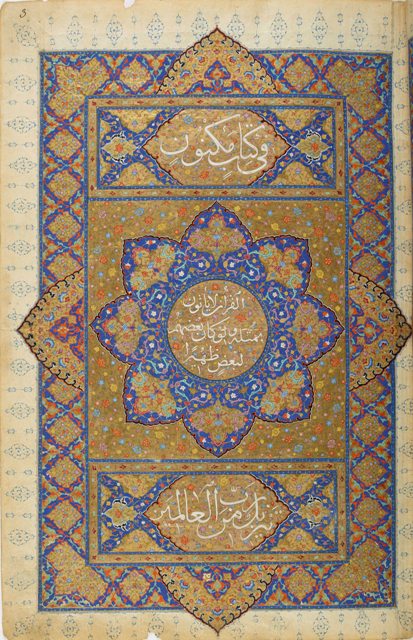 3
في كتاب مكنون
القرآن لا ياتون
بمثله ولو كان بعضهم
لبعض ظهيرا
تنزيل من رب العالمين